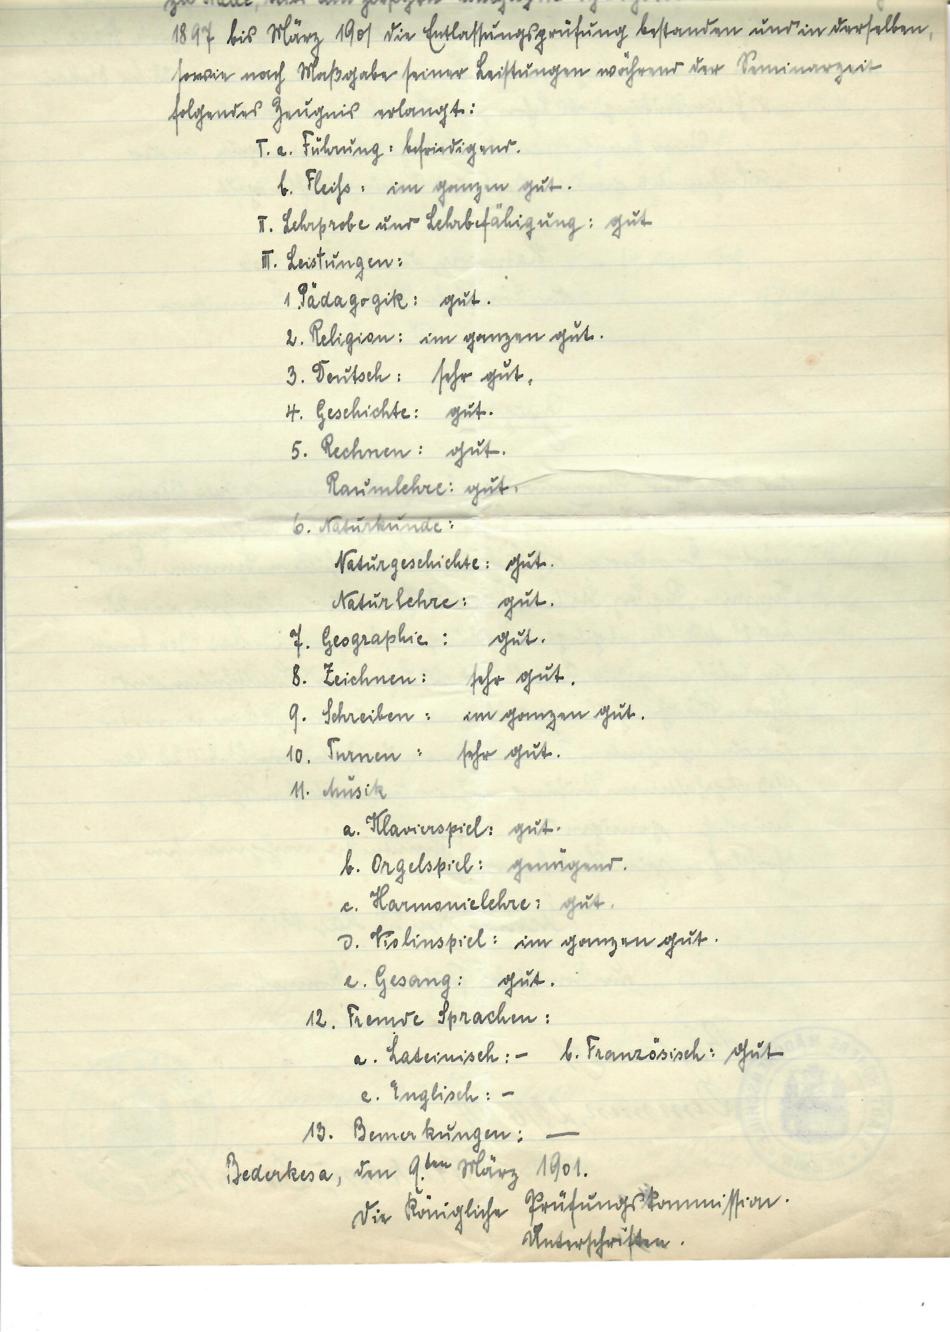 1897 bis März 1901 die Entlassungsprüfung bestanden und in derselben,
sowie nach Maßgabe seiner Leistungen während der Seminarzeit
folgendes Zeugnis erlangt:
I. a. Führung: befriedigend.
b. Fleiß: im ganzen gut.
II. Lehrprobe und Lehrbefähigung: gut
III. Leistungen:
1. Pädagogik: gut.
2. Religion: im ganzen gut.
3. Deutsch: sehr gut.
4. Geschichte: gut.
5. Rechnen: gut.
Raumlehre: gut.
6. Naturkunde:
Naturgeschichte: gut.
Naturlehre: gut.
7. Geographie: gut.
8. Zeichnen: sehr gut.
9. Schreiben: im ganzen gut.
10. Turnen: sehr gut.
11. Musik
a. Klavierspiel: gut.
b. Orgelspiel: genügend.
c. Harmonielehre: gut.
d. Violinspiel: im ganzen gut.
e. Gesang: gut.
12. Fremde Sprachen:
a. Lateinisch: – b. Französisch: gut
c. Englisch: –
13. Bemerkungen: —
Bederkesa, den 9.ten März 1901.
Die Königliche Prüfungskommission.
Unterschriften.